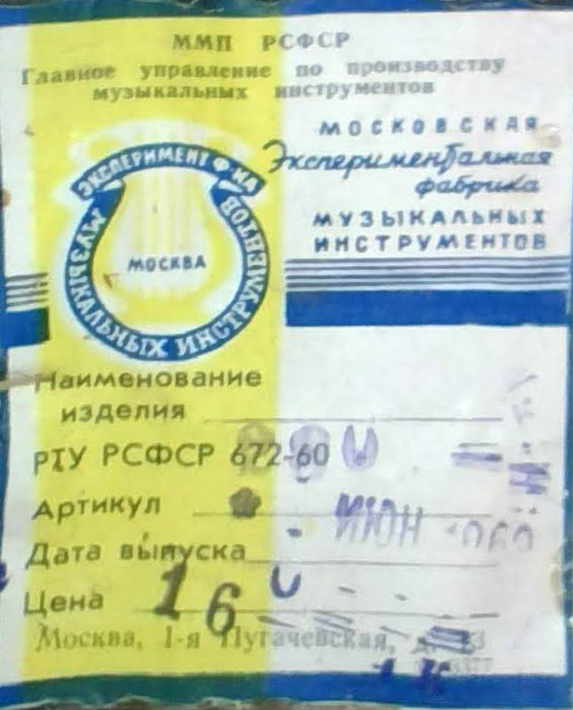 ММП РСФСР
Главное управление по производству
музыкальных инструментов
МОСКОВСКАЯ
Экспериментальная
фабрика
МУЗЫКАЛЬНЫХ
ИНСТРУМЕНТОВ
ЭКСПЕРИМЕНТ Ф-КА
МУЗЫКАЛЬНЫХ ИНСТРУМЕНТОВ
МОСКВА
Наименование
изделия
РТУ РСФСР 672-60
Артикул
ИЮН
Дата выпуска
Цена 16
Москва, 1-я Пугачевская, д.